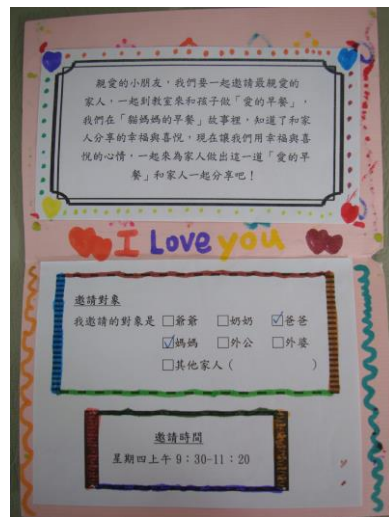 親愛的小朋友，我們要一起邀請最親愛的
家人，一起到教室來和孩子做「愛的早餐」，
我們在「貓媽媽的早餐」故事裡，知道了和家
人分享的幸福與喜悅，現在讓我們用幸福與喜
悅的心情，一起來為家人做出這一道「愛的早
餐」和家人一起分享吧！
I Love you
邀請對象
我邀請的對象是 □爺爺 □奶奶 ☑爸爸
☑媽媽 □外公 □外婆
□其他家人（ ）
邀請時間
星期四上午 9：30-11：20